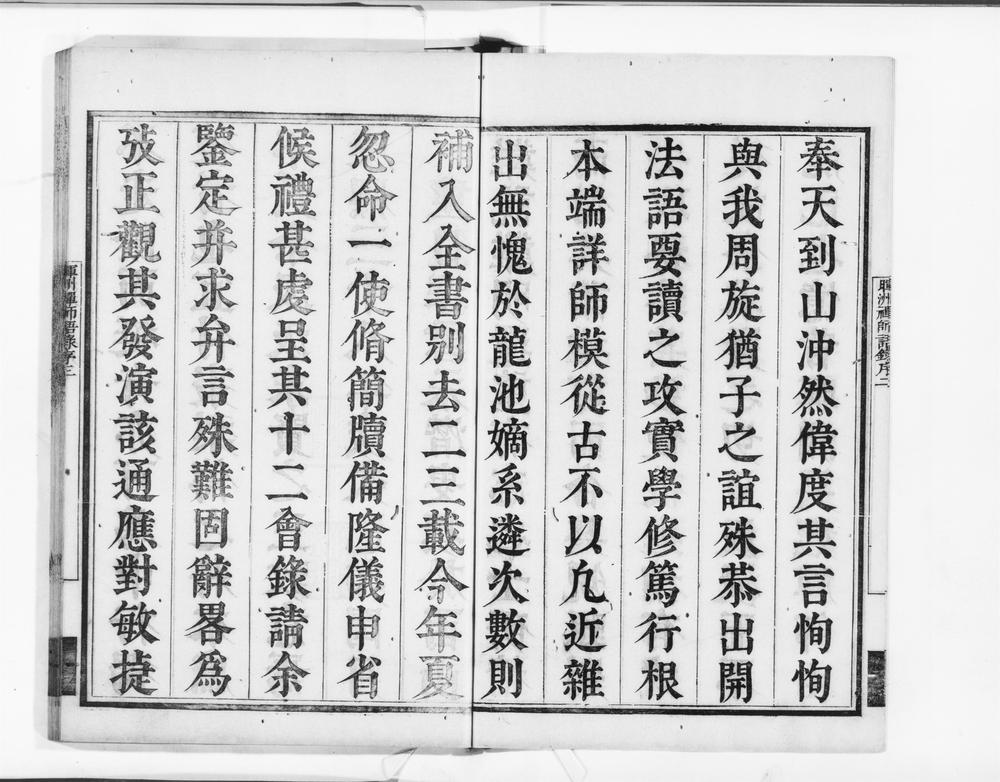 奉天到山沖然偉度其言恂恂
與我周旋猶子之誼殊恭出開
法語要讀之攻實學修篤行根
本端詳師模從古不以凢近雜
出無愧於龍池嫡系遴次數則
補入全書別去二三載今年夏
忽命一使脩簡牘備隆儀申省
候禮甚虔呈其十二會錄請余
鑒定并求弁言殊難固辭畧爲
攷正觀其發演該通應對敏捷
洲禪師語錄序二
洲禪師語錄序三